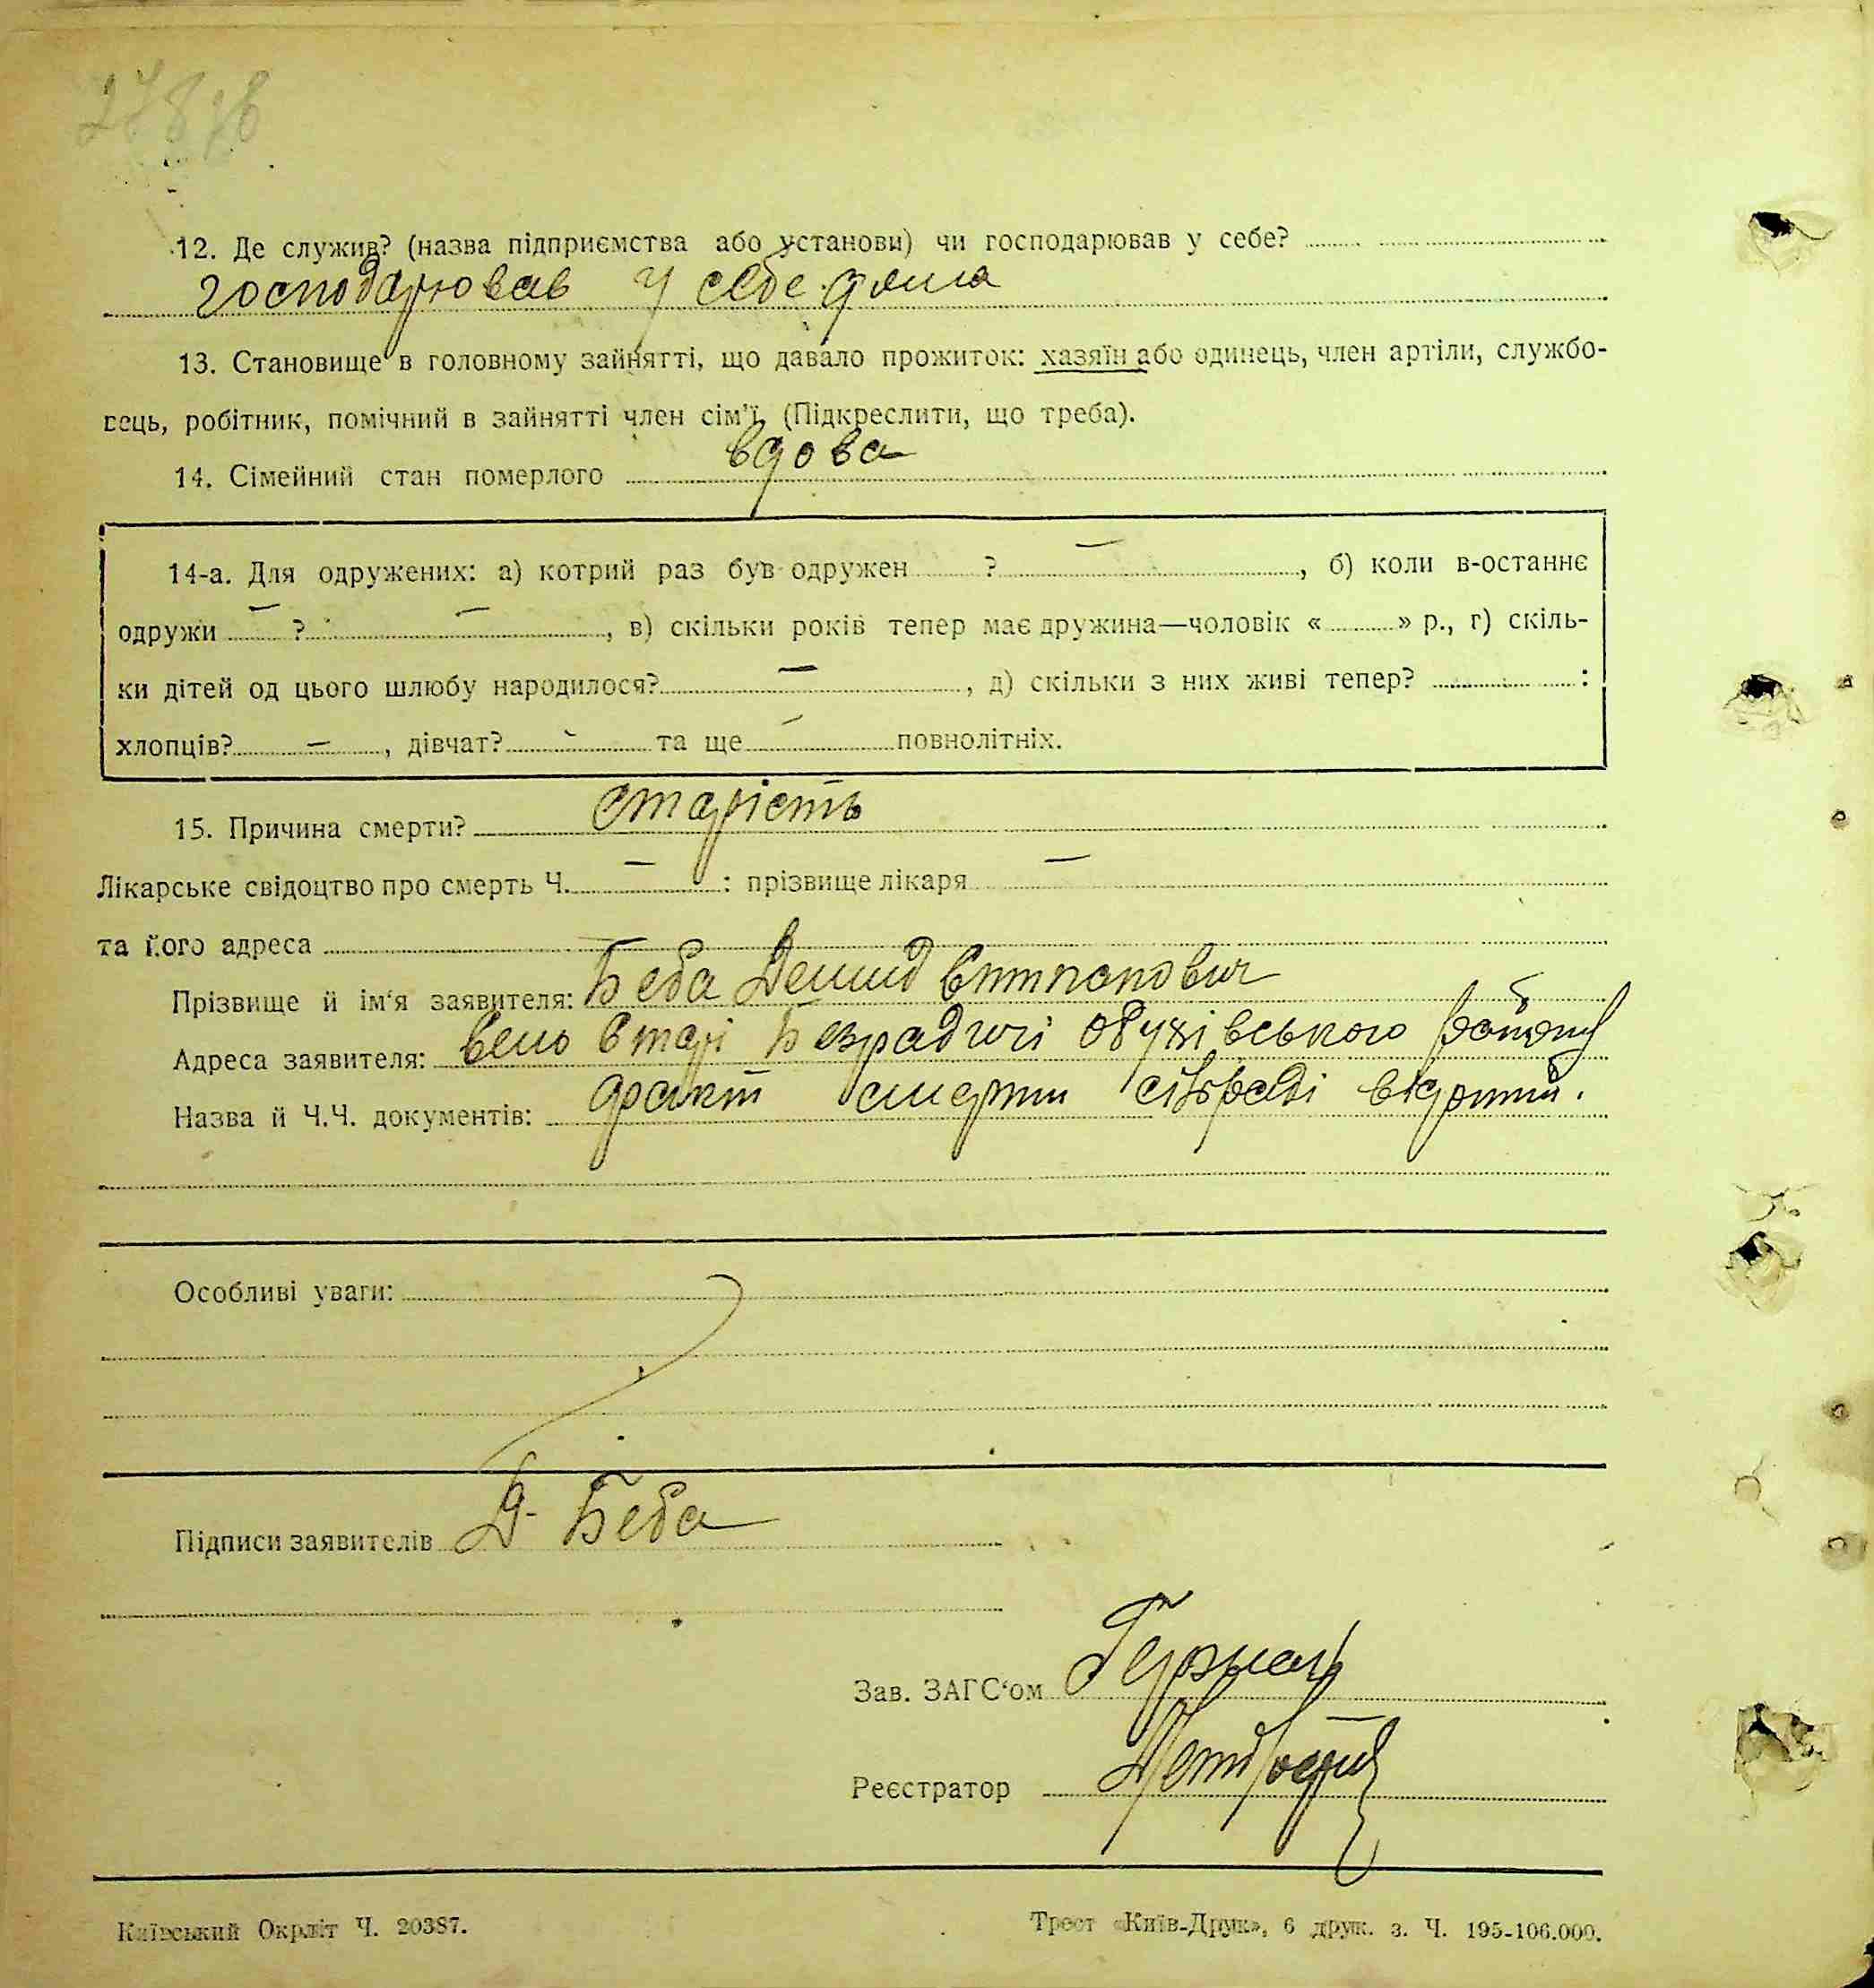 12. Де служив? (назва підприємства або установи) чи господарював у себе?
господарював у себе дома
13. Становище в головному зайнятті, що давало прожиток: хазяїн або одинець, член артіли, службо-
вець, робітник, помічний в зайнятті член сім'ї, (Підкреслити, що треба).
14. Сімейний стан померлого вдова
14-а. Для одружених: а) котрий раз був одружен ? —, б) коли в-останнє
одружи — ? —, в) скільки років тепер має дружина—чоловік « » р., г) скіль-
ки дітей од цього шлюбу народилося? —, д) скільки з них живі тепер? :
хлопців? —, дівчат? - та ще — повнолітніх.
15. Причина смерти? старість
Лікарське свідоцтво про смерть Ч. — : прізвище лікаря —
та його адреса —
Прізвище й ім'я заявителя: Беба Демид
Адреса заявителя: село Старі Безрадичі Обухівського району
Назва й Ч.Ч. документів: факт смерти сільраді
Особливі уваги:
Підписи заявителів Д. Беба
Зав. ЗАГС'ом
Реєстратор
Київський Окрліт Ч. 20387.
Трест «Київ-Друк», 6 друк. з. Ч. 195-106.000.